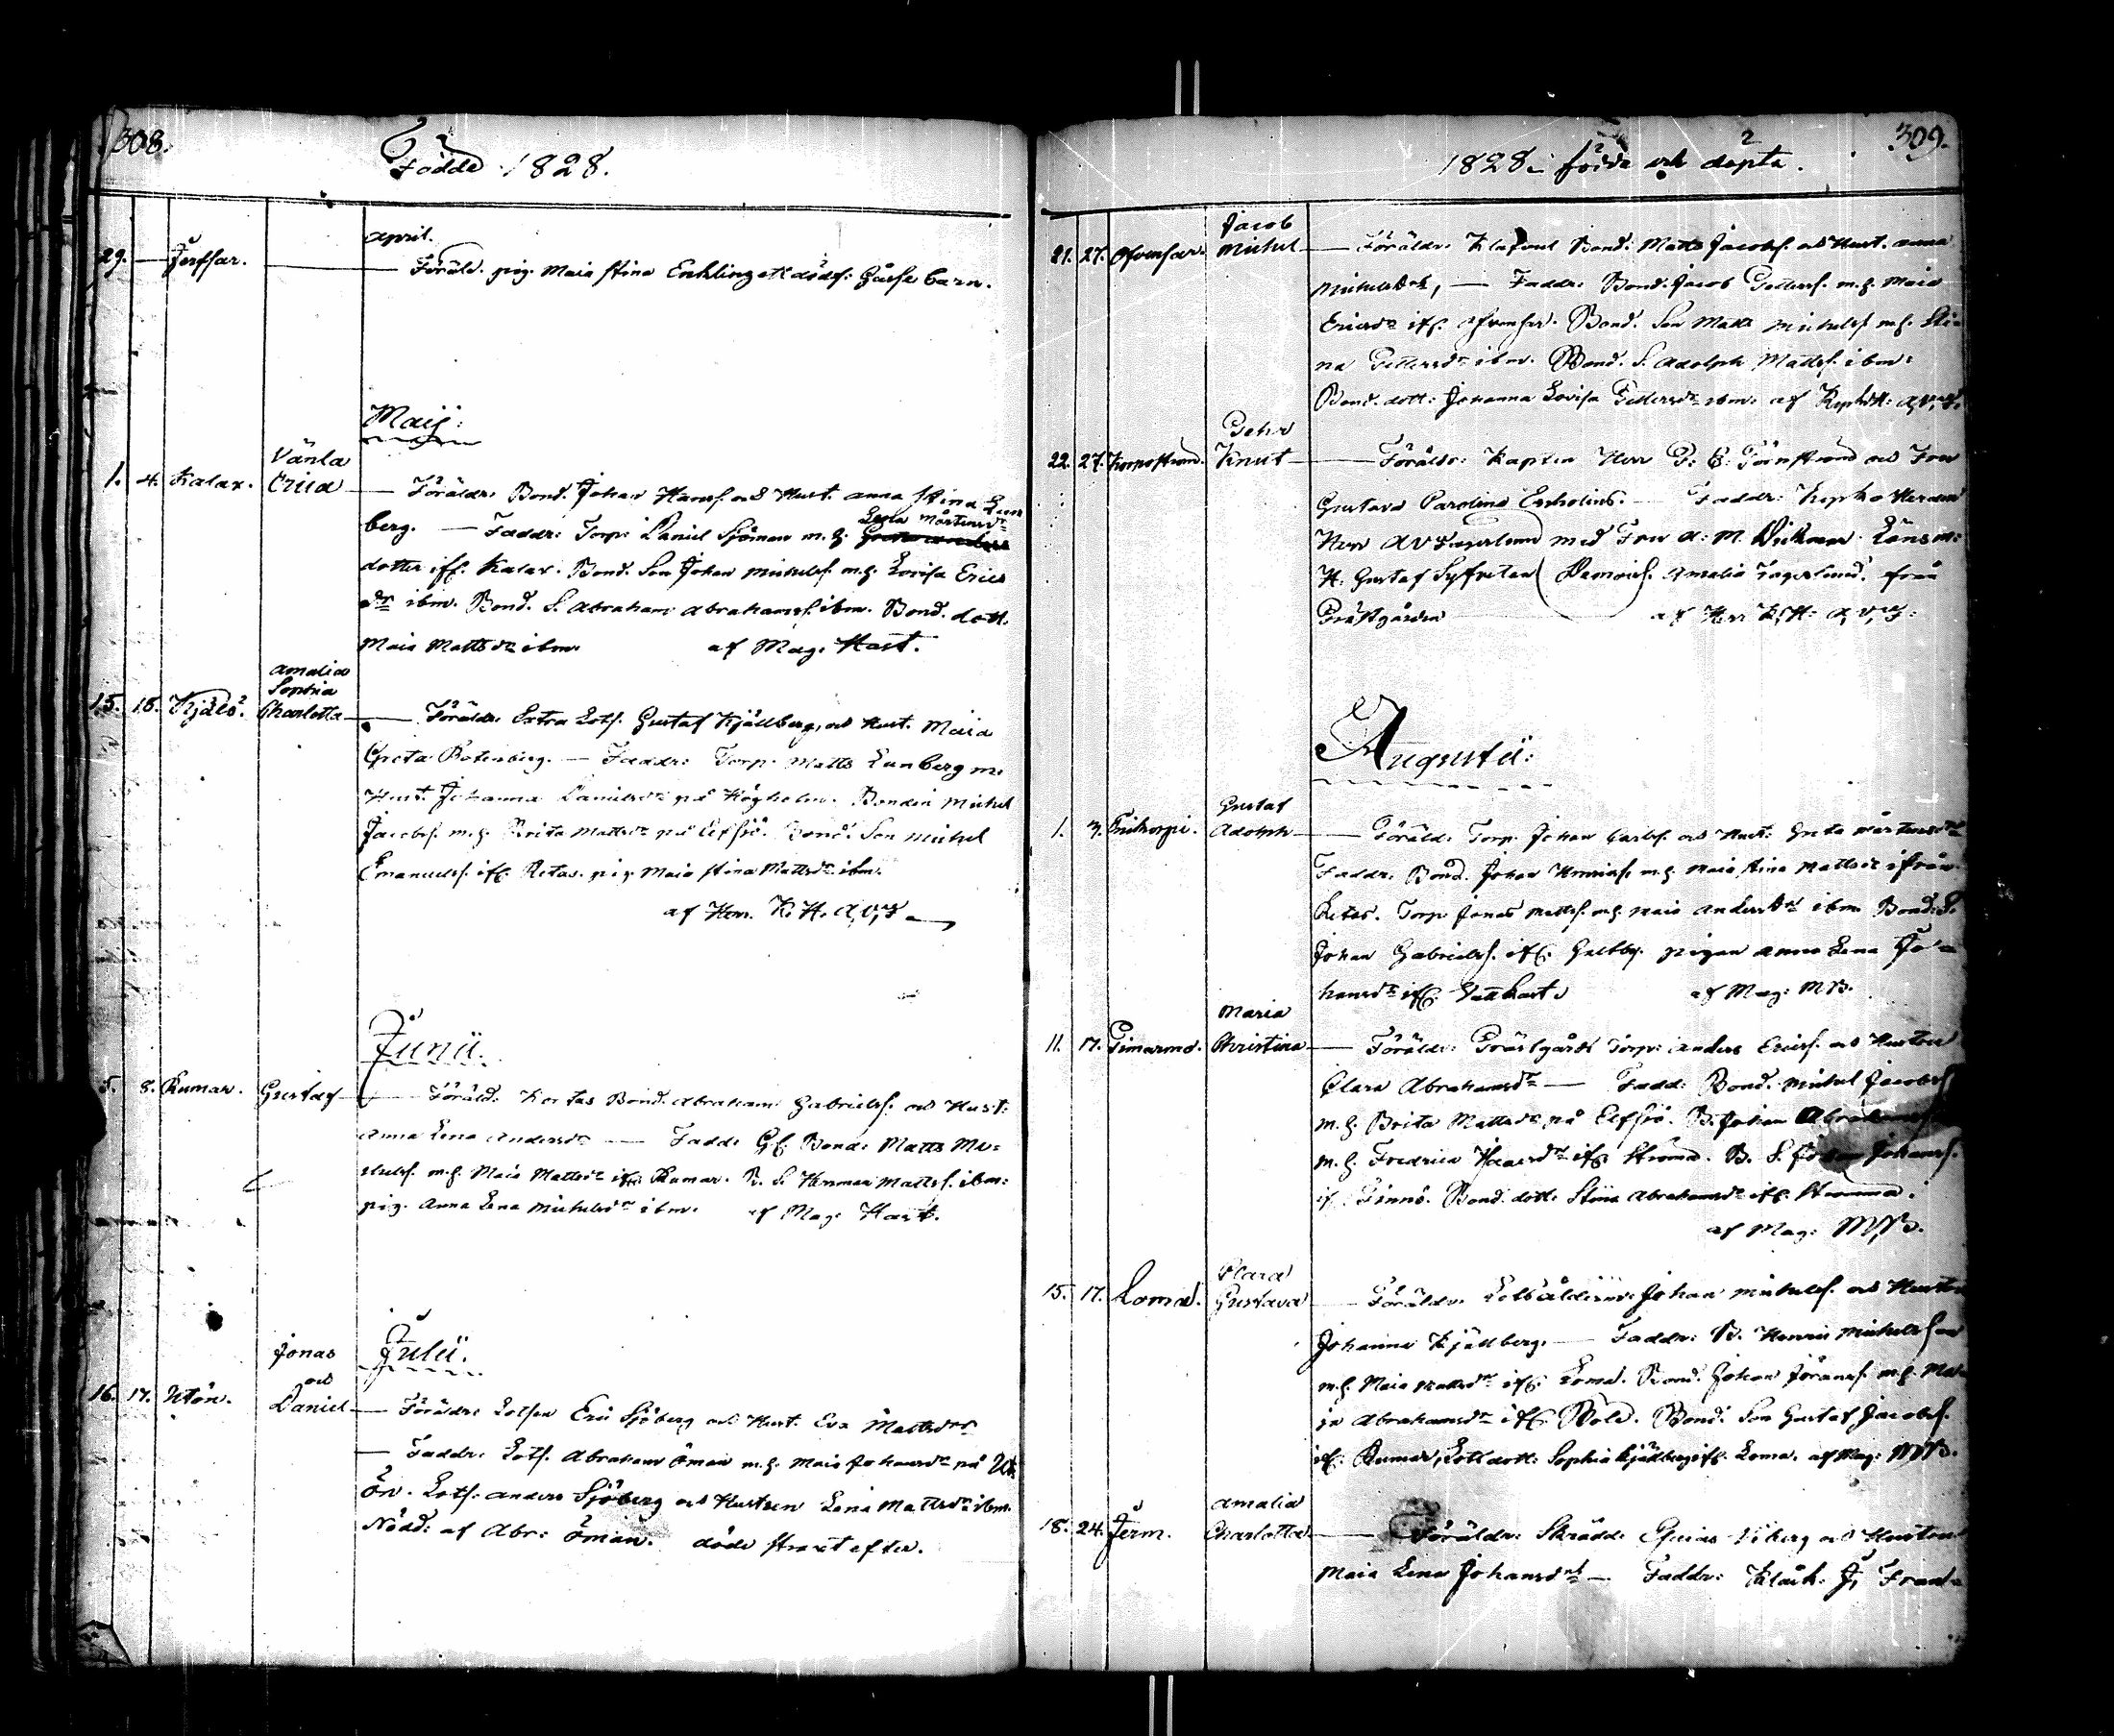 308.
Födde 1828.
April.
29. — Jerssar. — Föräld. pig. Maia Stina Enklings ett dödf: Gåsse barn.
Maij:
Vänla
1. 4. Kalax. Erica — Föräldr. Bond. Johan Hanss. och Hust. Anna Stina Lun
berg. — Faddr: Torp: Daniel Sjöman m.h. Mårtensdr
dotter ifr. Kalax. Bond. Son Johan Michelss. m.h. Lovisa Erics
dr ibm. Bond. S. Abraham Abrahamss. ibm. Bond. dott.
Maia Mattsdr ibm. af Mag. Hast.
Amalia
Sophia
15. 18. Charlotta — Föräldr. Extra Lots. Gustaf Kjällberg, och Hust. Maia
Greta — Faddr: Torp. Matts Lunberg m.
Hust. Johanna Danielsdr på Högholm. Bonden Michel
Jacobss. m.h. Brita Mattsdr på Elfsjö. Bond. Son Michel
Emanuelss. ifr. Retas. pig. Maia Stina Mattsdr ibm.
af Herr. K. H. A.V.F.
Junii.
5. 8. Rumar. Gustaf — Föräld. Kortas Bond. Abraham Gabrielss. och Hust.
Anna Lena Andersdr — Fadd: Bond: Matts Mi-
chelss. m.h. Maia Mattsdr ifr. Rumar. B. S. Herman Mattss. ibm:
pig. Anna Lena Michelsdr ibm. af Mag. Hast.
Julii.
Jonas
och
16. 17. Utön. Daniel — Föräldr: Lotsen Eric Sjöberg och Hust: Eva Mattsdr
— Faddr: Lots. Abraham Öman m.h. Maia Johansdr på Ut
ön. Lots: Anders Sjöberg och Hustrun Lena Mattsdr ibm.
Nödd: af Abr: Öman. döde straxt efter.
309.
1828. födda och döpta.
Jacob
21. 27. Ofvensar. Michel — Föräldr. Bond: Matts Jacobss. och Hust. Anna
Michelsdr, — Faddr: Bond. Jacob Petterss. m.h. Maia
Ericsdr ifr. Ofvensar. Bond. Son Matts Michelss m.h. Sti-
na Pettersdr ibm. Bond. S. Adolph Mattss. ibm:
Bond. dott: Johanna Lovisa Pettersdr ibm: af Kyrkoh: A.V.F.
Petter
22. 27. Korpoström. Knut — Föräldr: Kapten Herr P: G: Törnström och Fru
Gustava Carolina Enholins. — Faddr: Kyrko Herden
Herr A V Fagerlund med Fru A: M. Wickman Länsm:
H: Gustaf Amalia Fagerlund från
Prästgården af Herr K.H: A.V.F:
Augusti:
Gustaf
1. 3. Adolph — Föräld: Torp. Johan Carlss. och Hust: Greta Mårtensdr
Faddr. Bond. Johan Henricss. m.h. Maia Stina Mattsdr ifrån
Retas. Torp Jonas Mattss. m.h. Maia Andersdr ibm. Bond: S.
Johan Gabrielss. ifr. Galtby. pigan Anna Lena Jo-
hansdr ifr. af Mag: M B.
Maria
11. 17. Christina — Föräldr: Prästgårds Torp: Anders Ericss. och Hustrun
Clara Abrahamsdr — Fadd: Bond. Michel Jacobss
m.h. Brita Mattsdr på Elfsjö. B. Johan
m.h. Fredrica ifr. Strömma. B. S. Johan Johanss.
if. Finnö. Bond. dott: Stina Abrahamsdr ifr. Strömma.
af Mag: M,B.
Clara
15. 17. Loma. Gustava — Föräldr. Lotsålderm. Johan Michelss. och Hustrun
Johanna Kjällberg. — Faddr: B. Henric Michelsson
m.h. Maia Mattsdr ifr. Loma. Bond. Johan Jöranss. m.h. Ma-
ja Abrahamsdr ifr. Wolå. Bond. Son Gustaf Jacobss.
ifr. Rumar, Lots dott: Sophia Kjällberg ifr. Loma. af Mag: M.B.
Amalia
18. 24. Jerm. Charlotta — Föräldr: Skrädd: och Hustrun
Maia Lena Johansdr — Faddr: Klock. J,